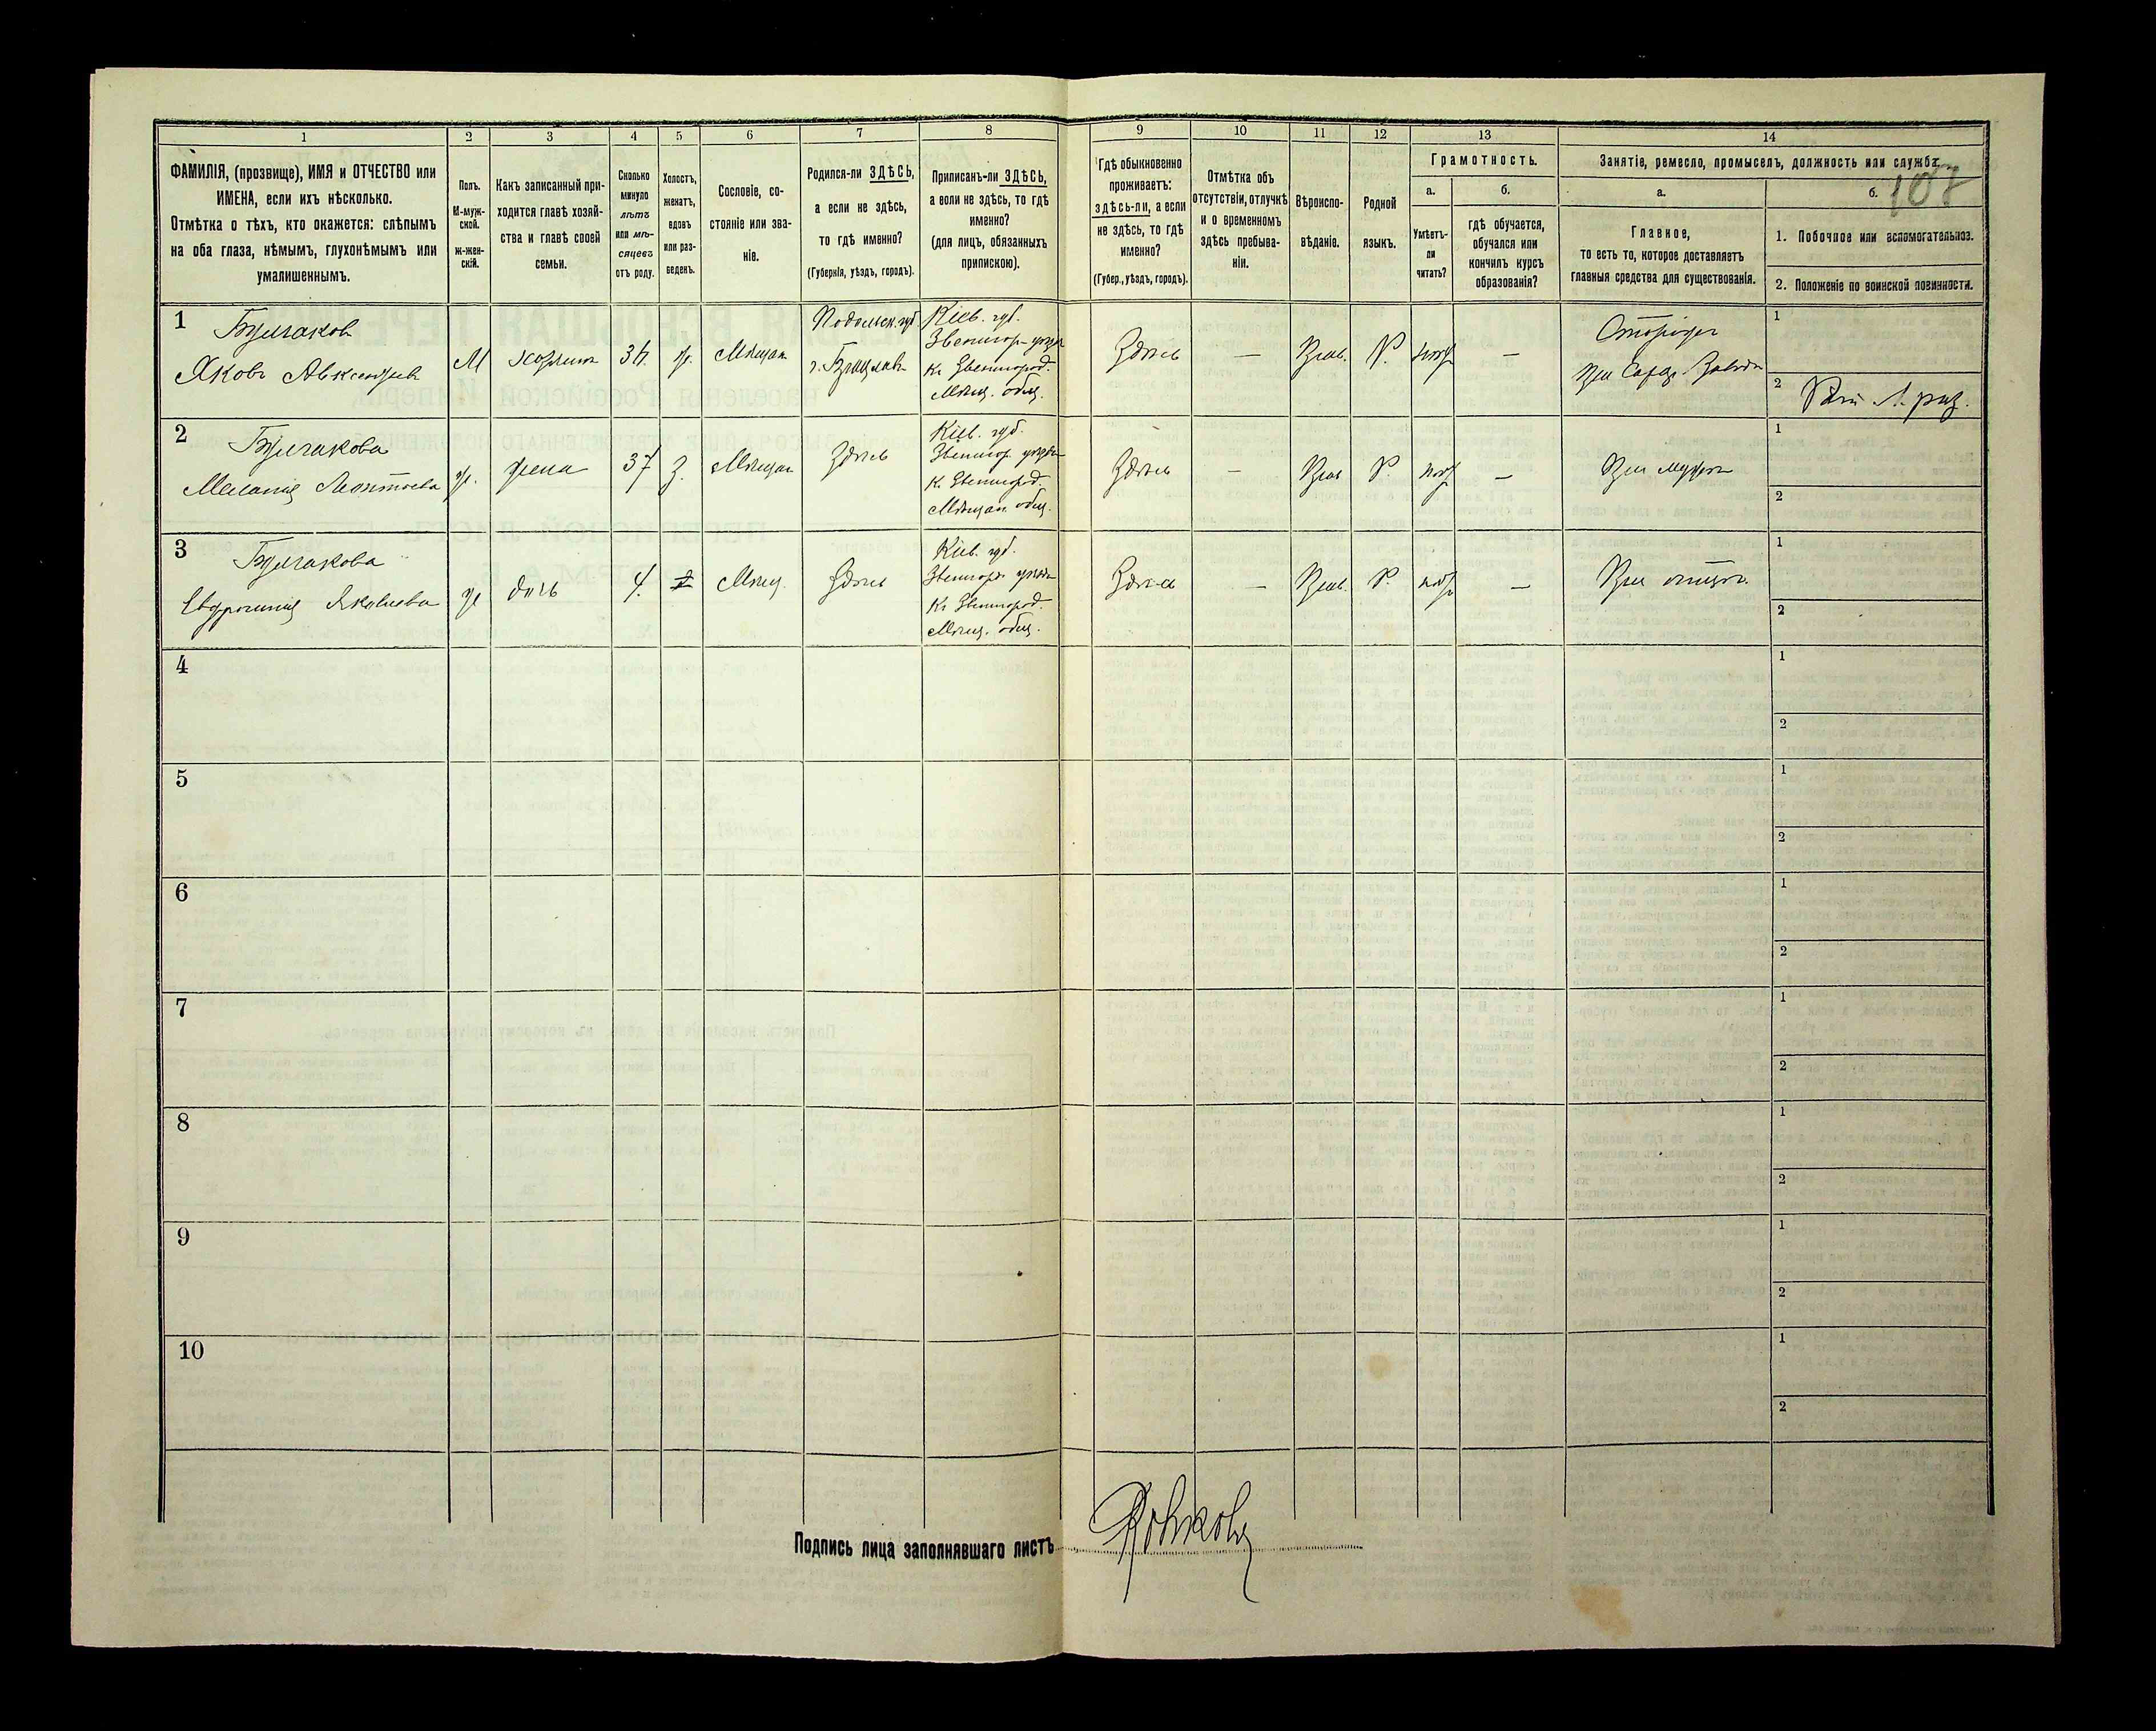 1
2
3
4
5
6
7
8
9
10
11
12
13
14
107
ФАМИЛІЯ, (прозвище), ИМЯ и ОТЧЕСТВО или
ИМЕНА, если ихъ нѣсколько.
Отмѣтка о тѣхъ, кто окажется: слѣпымъ
на оба глаза, нѣмымъ, глухонѣмымъ или
умалишеннымъ.
Полъ.
М-муж-
ской.
ж-жен-
скій.
Какъ записанный при-
ходится главѣ хозяй-
ства и главѣ своей
семьи.
Сколько
минуло
лѣтъ
или мѣ-
сяцевъ
отъ роду.
Холостъ,
женатъ,
вдовъ
или раз-
веденъ.
Сословіе, со-
стояніе или зва-
ніе.
Родился-ли ЗДѢСЬ,
а если не здѣсь,
то гдѣ именно?
(Губернія, уѣздъ, городъ).
Приписанъ-ли ЗДѢСЬ,
а если не здѣсь, то гдѣ
именно?
(для лицъ, обязанныхъ
припискою).
Гдѣ обыкновенно
проживаетъ:
здѣсь-ли, а если
не здѣсь, то гдѣ
именно?
(Губер., уѣздъ, городъ).
Отмѣтка объ
отсутствіи, отлучкѣ
и о временномъ
здѣсь пребыва-
ніи.
Вѣроиспо-
вѣданіе.
Родной
языкъ.
Грамотность.
а.
Умѣетъ-
ли
читать?
б.
гдѣ обучается,
обучался или
кончилъ курсъ
образованія?
Занятіе, ремесло, промыселъ, должность или служба.
а.
Главное,
то есть то, которое доставляетъ
главныя средства для существованія.
б.
1. Побочное или вспомогательное.
2. Положеніе по воинской повинности.
1
Булгаковъ
Яковъ
М
Хозяинъ
ж.
Мѣщан
Подольск. губ
г. Брацлавъ
Кіев. губ.
Звенигор. уѣзда
къ Звенигород.
Мѣщ. общ.
Здѣсь
—
Прав.
Р.
—
Сторожъ
При Сахар. Заводѣ
1
2
2
Булгакова
Меланія Леонтьева
ж.
жена
37
З.
Мѣщан
Здѣсь
Кіев. губ.
Звенигор. уѣзда
къ Звенигород.
Мѣщан. общ.
Здѣсь
—
Прав
Р.
—
При мужѣ
1
2
3
Булгакова
Евфросинія Яковлева
ж
дочь
4.
Мѣщ.
Здѣсь
Кіев. губ.
Звенигор. уѣзда
къ Звенигород.
Мѣщ. общ.
Здѣсь
—
Прав.
Р.
—
При отцѣ
1
2
4
1
2
5
1
2
6
1
2
7
1
2
8
1
2
9
1
2
10
1
2
Подпись лица заполнявшаго листъ